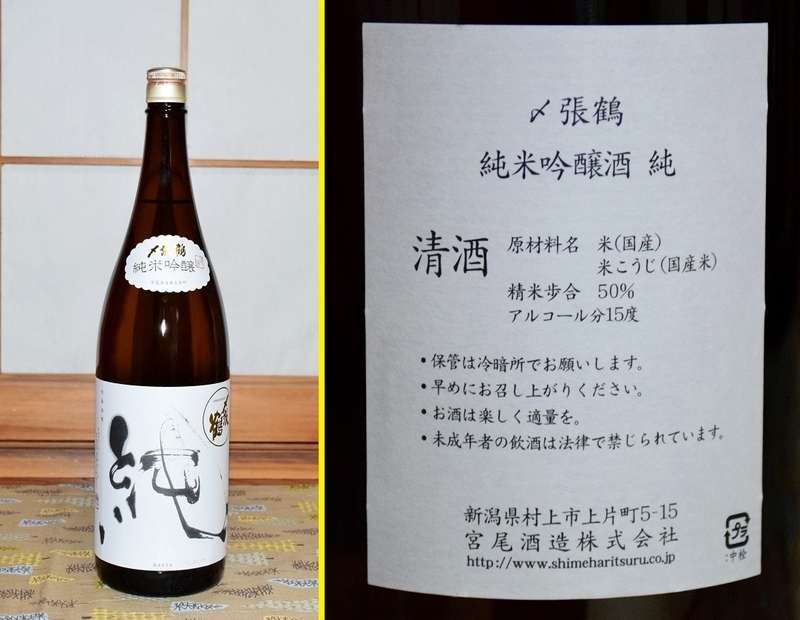 〆張鶴
純米吟醸
〆張鶴
純
〆張鶴
純米吟醸酒 純
清酒
原材料名 米(国産)
米こうじ(国産米)
精米歩合 50%
アルコール分15度
•保管は冷暗所でお願いします。
•早めにお召し上がりください。
•お酒は楽しく適量を。
•未成年者の飲酒は法律で禁じられています。
新潟県村上市上片町5-15
宮尾酒造株式会社
http://www.shimeharitsuru.co.jp
プラ
:中栓